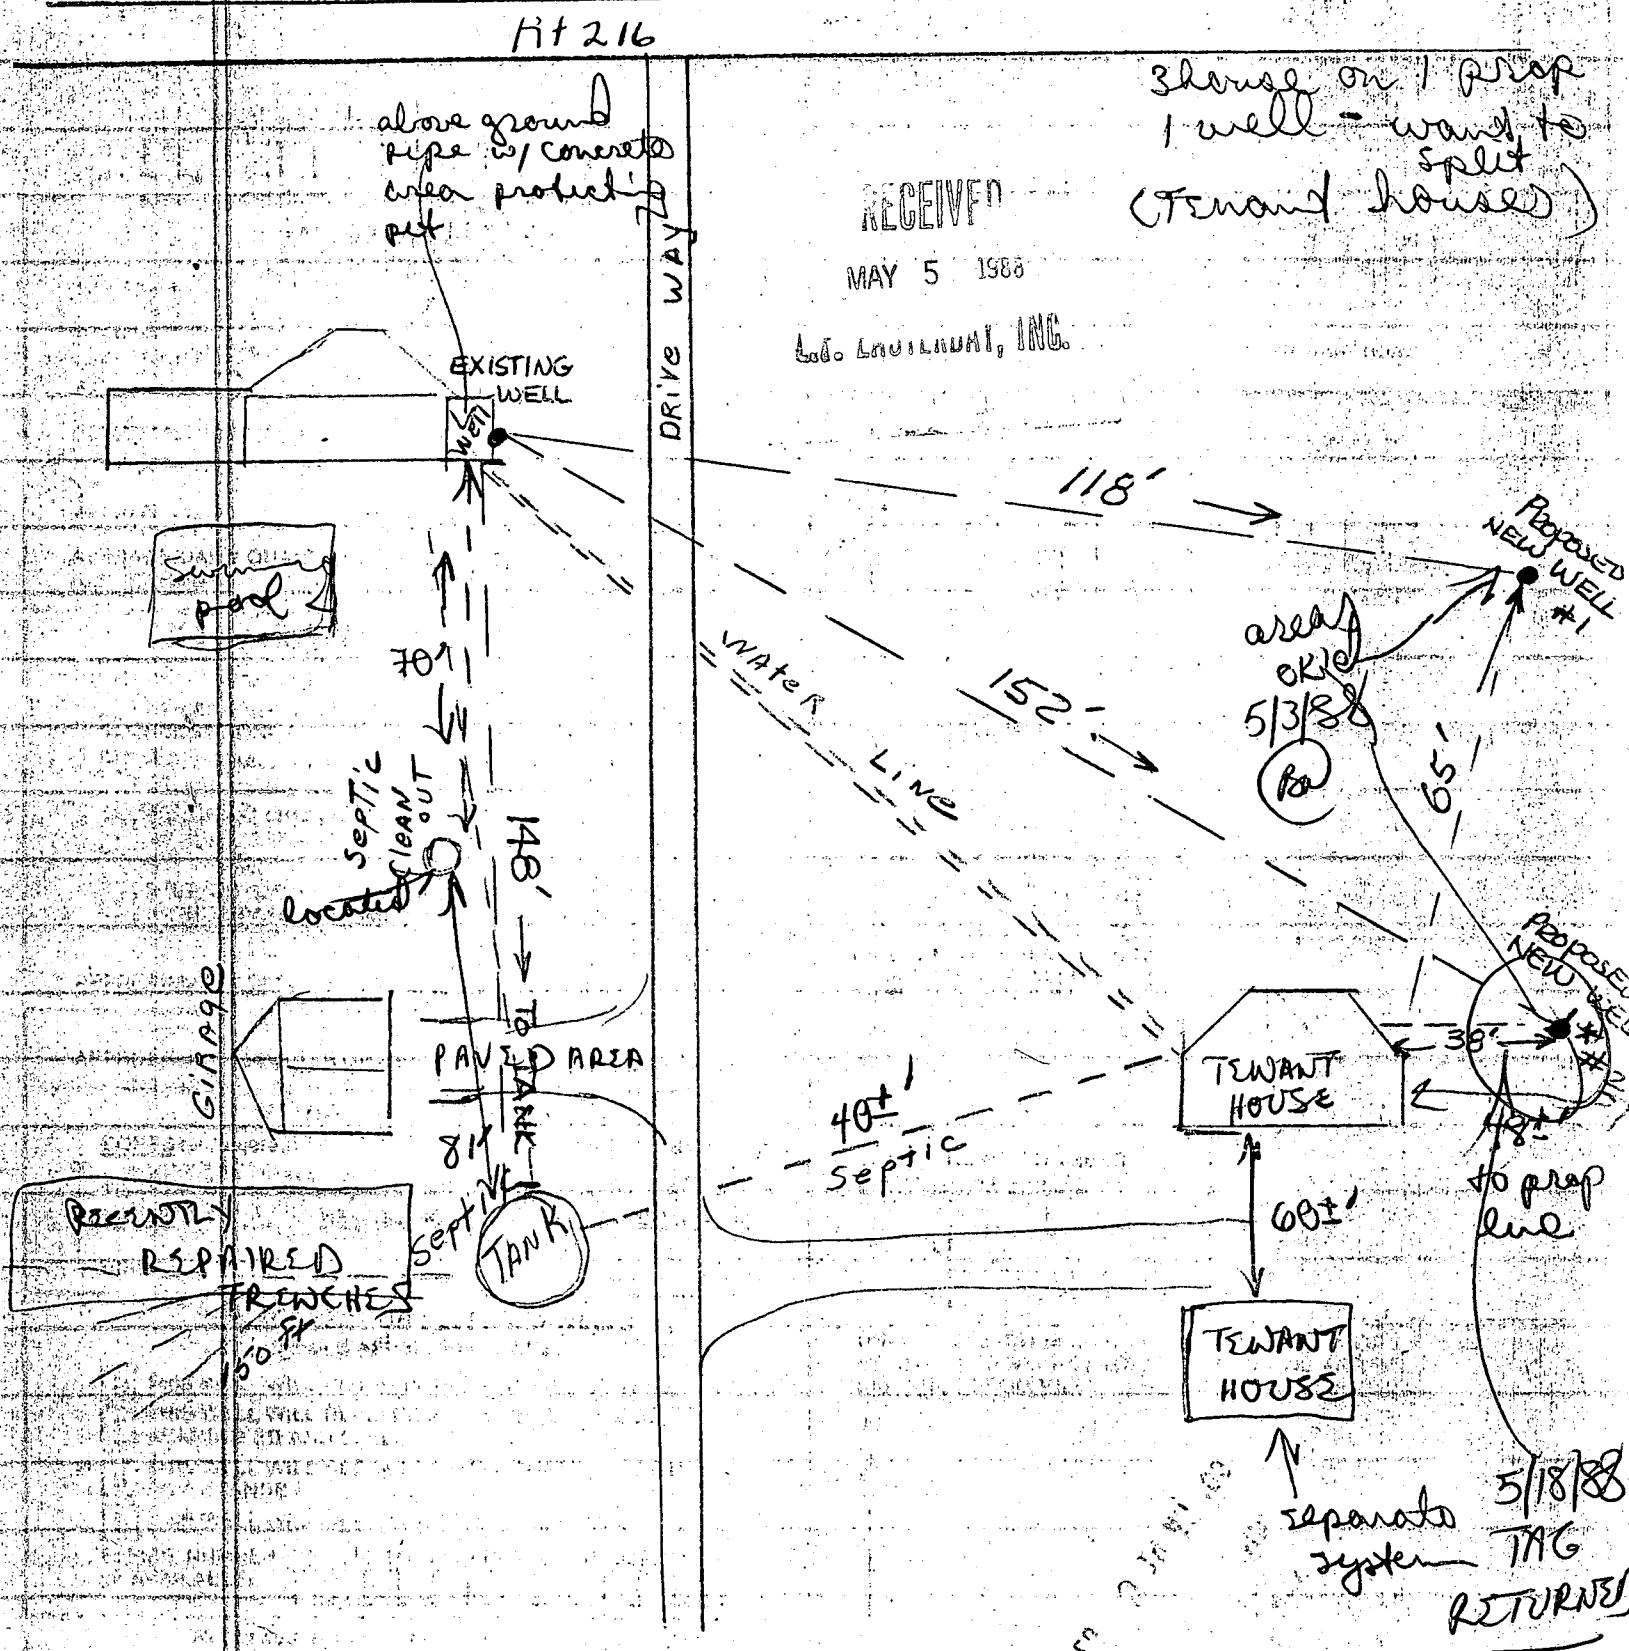 Rt 216
3 house on 1 prop
1 well - want to
split
(Tenant houses)
above ground
pipe w/ concrete
area protecting
pit
RECEIVED
MAY 5 1988
INC.
DRIVE WAY
EXISTING
WELL
Well
118'
PROPOSED
NEW
WELL
#1
Swimming
pool
area
OK'd
5/3/88
70'
WATER LINE
152'
65'
SEPTIC
CLEAN
OUT
located
148' TO TANK
PROPOSED
NEW WELL
#2
GARAGE
PAVED AREA
TENANT
HOUSE
38'
48±'
to prop
line
40±'
Septic
81'
Septic
TANK
60±'
RECENTLY
REPAIRED
TRENCHES
150 ft
TENANT
HOUSE
separate
system
5/18/88
TAG
RETURNED